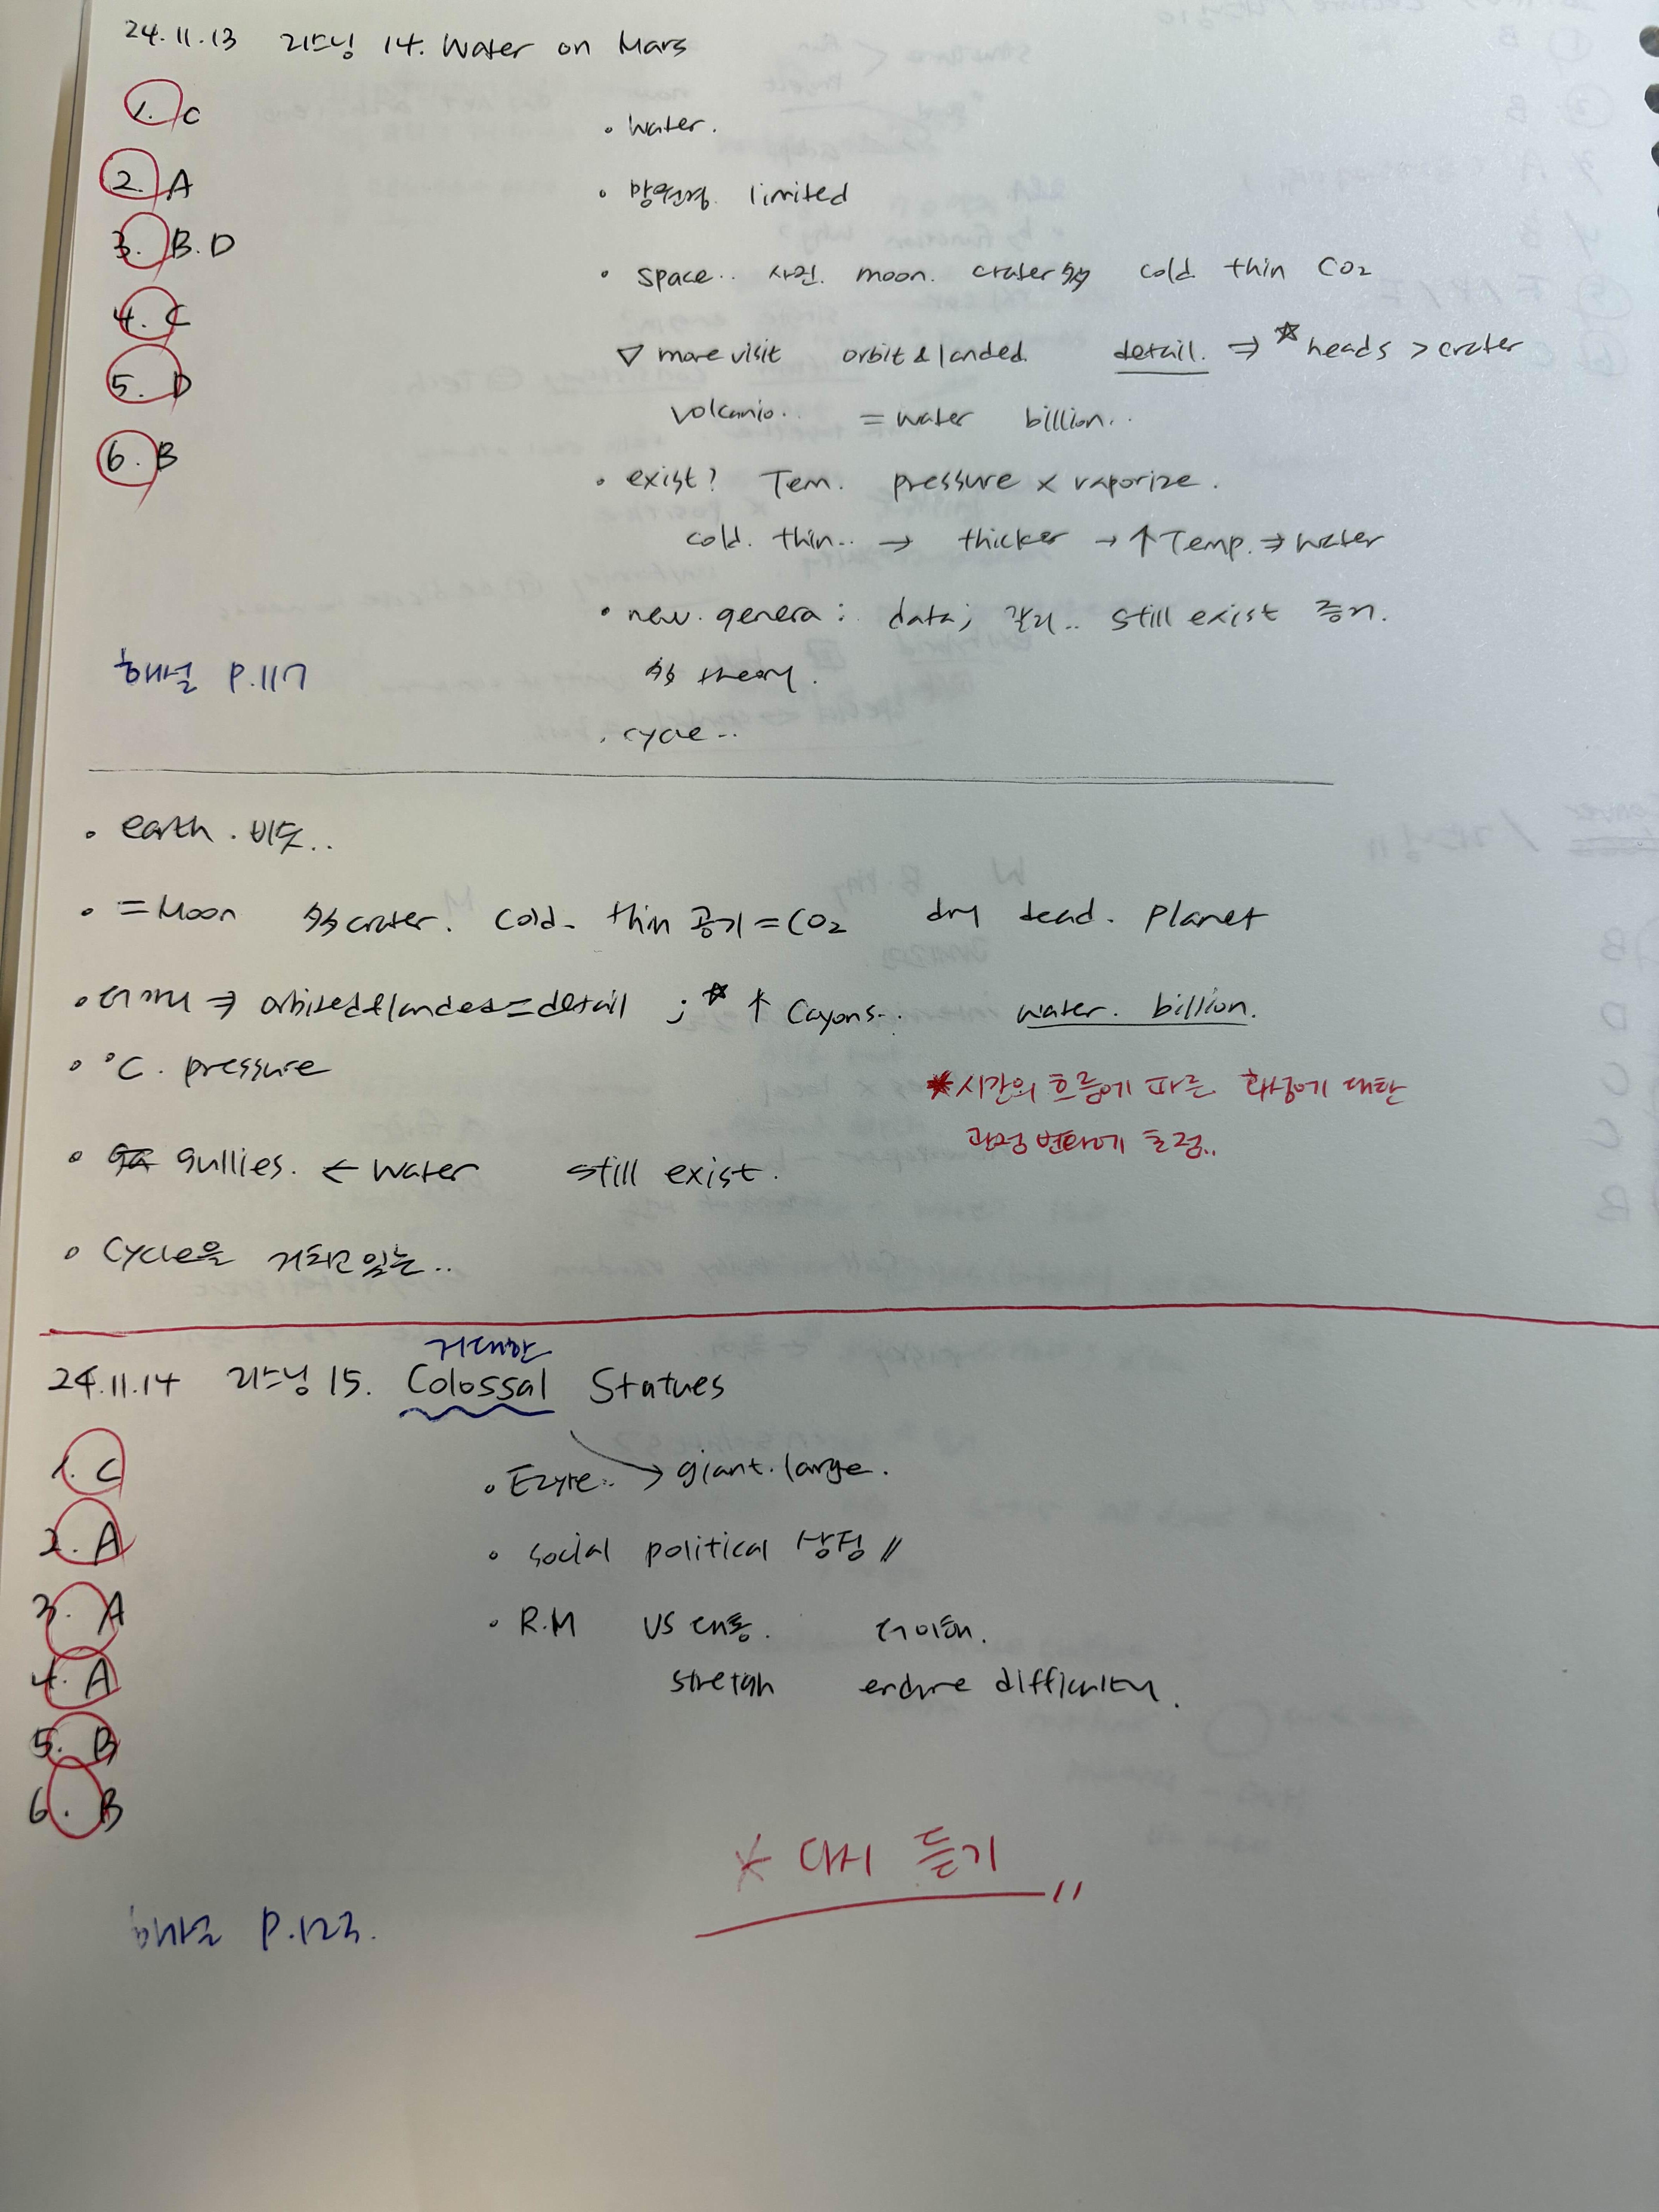 24.11.13 리스닝 14. Water on Mars
1. C
2. A
3. B.D
4. C
5. D
6. B
• water.
• 망원경. limited
• space.. 사진. moon. crater多 cold. thin CO2
▽ more visit orbit & landed. detail. ⇒ ☆ heads > crater
volcanio.. = water billion..
• exist? Tem. pressure x vaporize.
cold. thin.. → thicker → ↑Temp. ⇒ water
• new. genera: data; still exist 증거.
多 theory.
• cycle..
해설 P.117
• earth. 비슷..
• = Moon 多 crater. cold. thin 공기 = CO2 dry dead. planet
• ⇒ orbited & landed = detail ; ☆ ↑ Cayons.. water. billion.
• °C. pressure
* 시간의 흐름에 따른 화성에 대한
관점 변화에 초점..
• gullies. ← water still exist.
• Cycle을 거치고 있는..
거대한
24.11.14 리스닝 15. Colossal Statues
1. C
2. A
3. A
4. A
5. B
6. B
• → giant. large.
• social political 상징 //
• R.M VS
endure difficulty.
* 다시 듣기 //
해설 P.123.